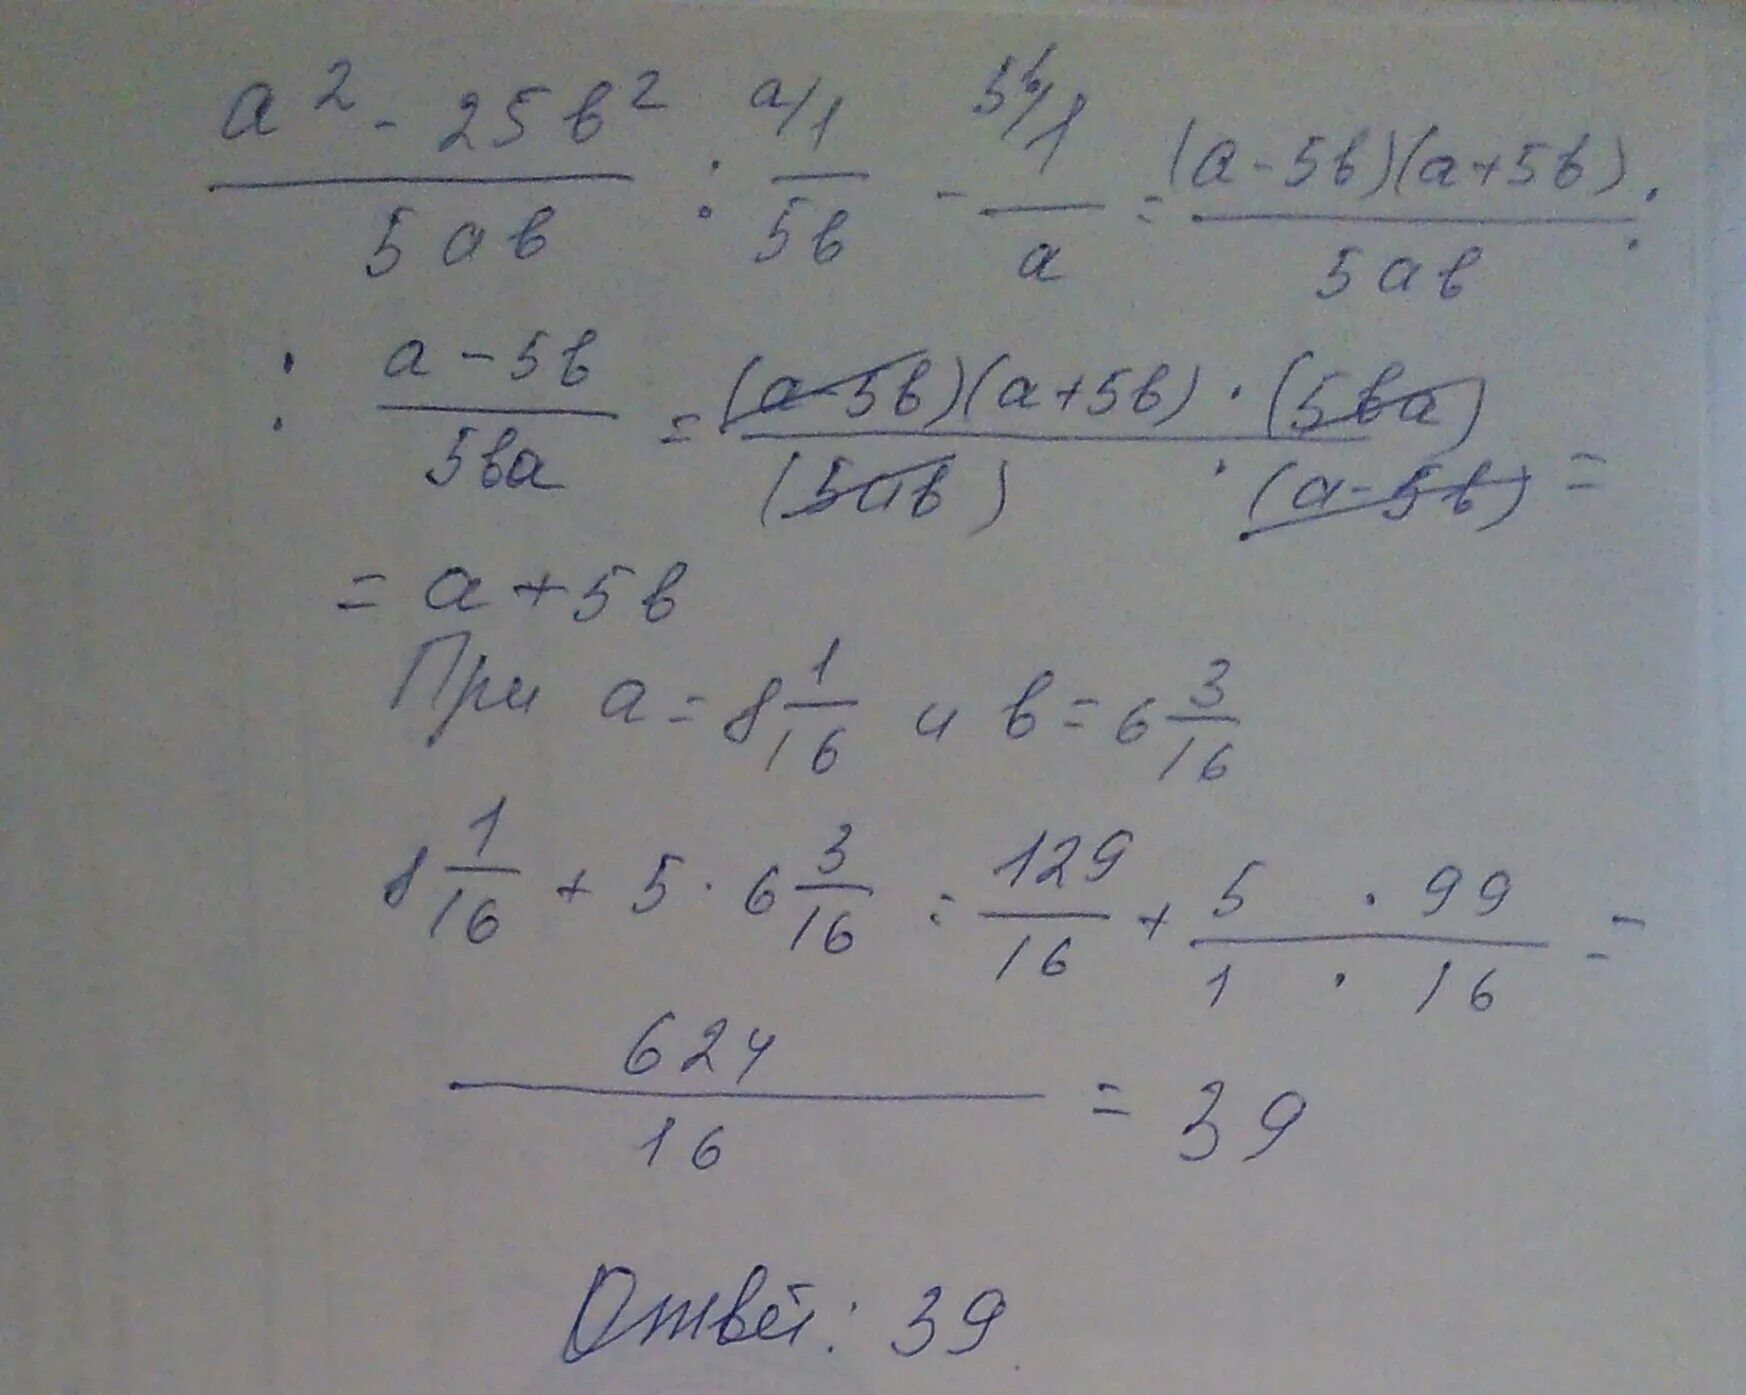 a² - 25b² / 5ab : a/ 1/5b - 5b/ 1/a = (a-5b)(a+5b) / 5ab :
: a-5b / 5ba = (a-5b)(a+5b) · (5ba) / (5ab) · (a-5b) =
= a+5b
При a = 8 1/16 и b = 6 3/16
8 1/16 + 5 · 6 3/16 = 129/16 + 5 · 99 / 1 · 16 =
624/16 = 39
Ответ: 39